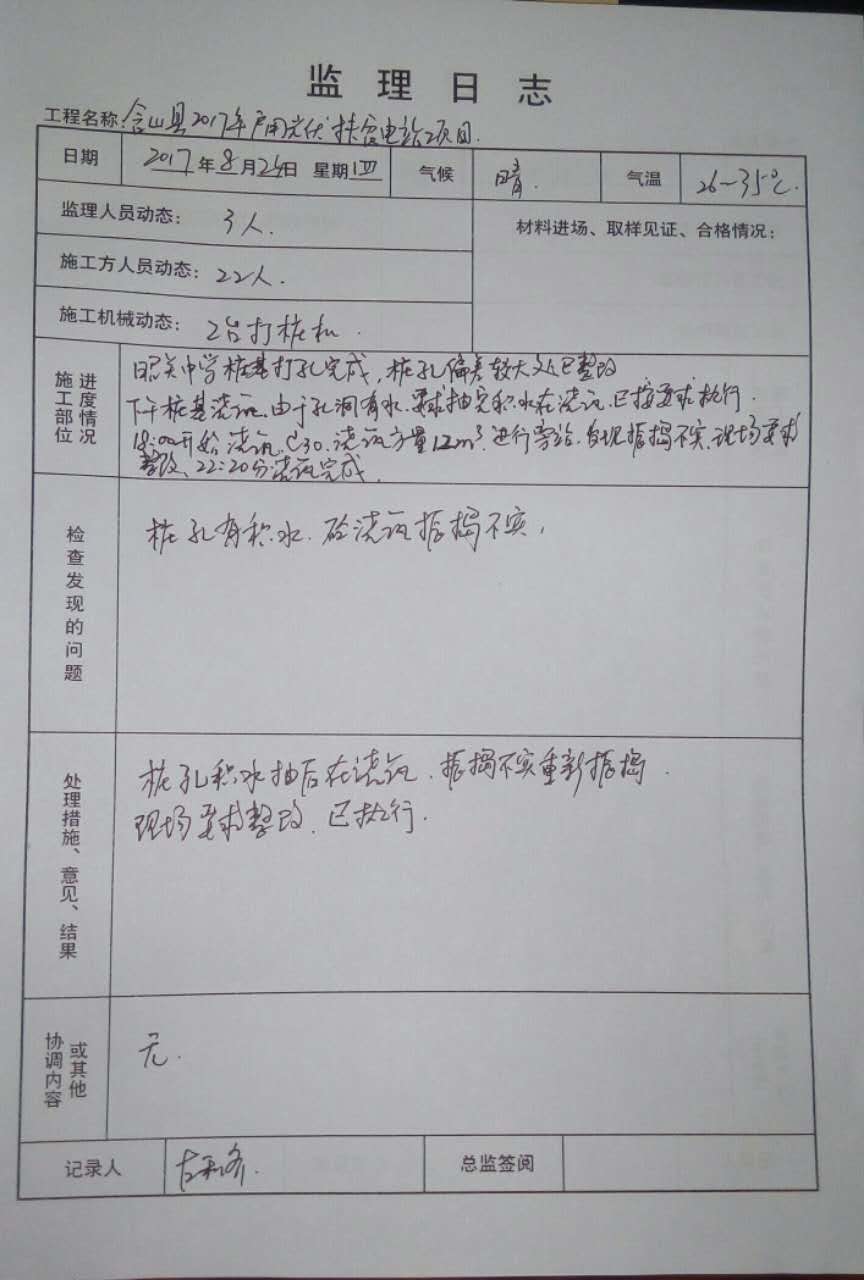 监理日志
工程名称:含山县2017年户用光伏扶贫电站项目.
日期 2017年8月24日 星期四 气候 晴. 气温 26~35℃.
监理人员动态: 3人.
材料进场、取样见证、合格情况:
施工方人员动态: 22人.
施工机械动态: 2台打桩机.
进度情况
施工部位
昭关中学桩基打孔完成,桩孔偏差较大处已整改
下午桩基浇筑,由于孔洞有水,要求抽完积水在浇筑,已按要求执行.
18:00开始浇筑,C30,浇筑方量12m³,进行旁站,发现振捣不实,现场要求
整改、22:20分浇筑完成.
检查发现的问题
桩孔有积水、砼浇筑振捣不实,
处理措施、意见、结果
桩孔积水抽后在浇筑、振捣不实重新振捣.
现场要求整改、已执行.
或其他
协调内容
无.
记录人 总监签阅